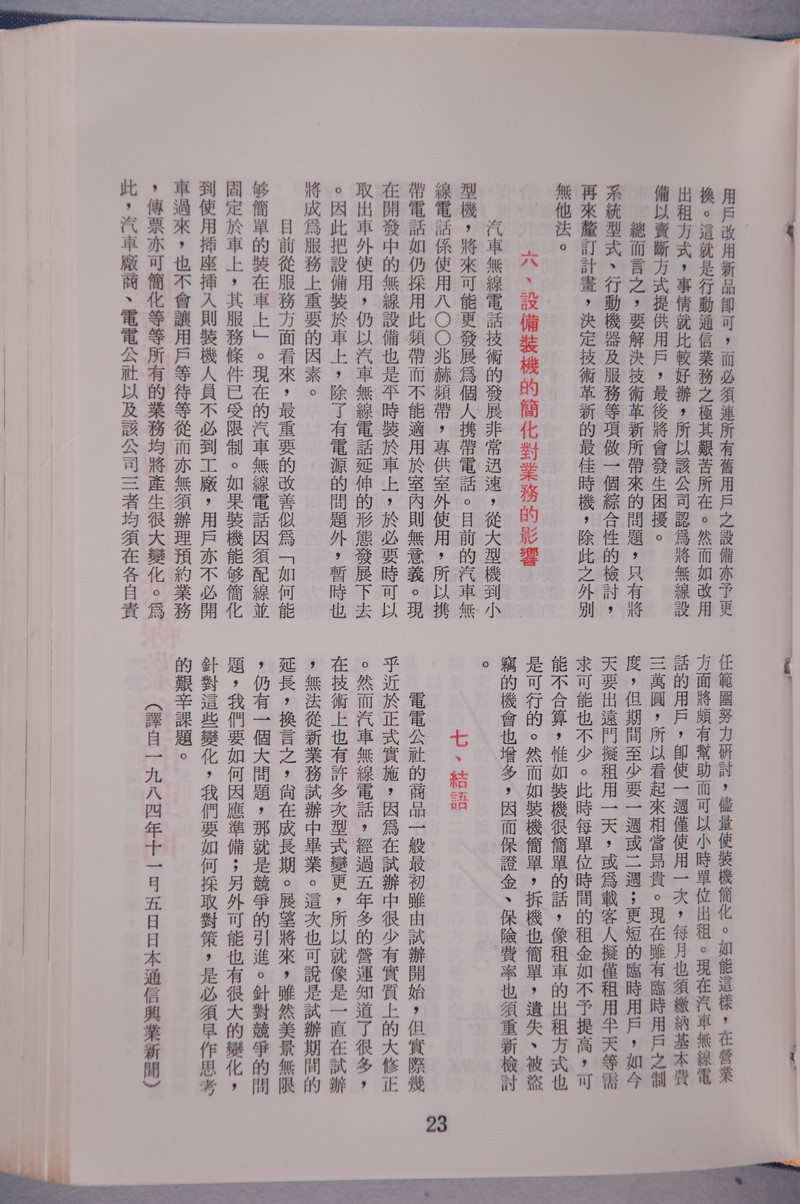 用戶改用新品卽可，而必須連所有舊用戶之設備亦予更
換。這就是行動通信業務之極其艱苦所在。然而如改用
出租方式，事情就比較好辦，所以該公司認爲將無線設
備以賣斷方式提供用戶，最後將會發生困擾。
總而言之，要解決技術革新所帶來的問題，只有將
系統型式、行動機器及服務等項做一個綜合性的檢討，
再來釐訂計畫，決定技術革新的最佳時機，除此之外別
無他法。
六、設備裝機的簡化對業務的影響
汽車無線電話技術的發展非常迅速，從大型機到小
型機，將來可能更發展爲個人携帶電話。目前的汽車無
線電話係使用八〇〇兆赫頻帶，專供室外使用，所以携
帶電話如仍採用此頻帶而不能適用於室內則無意義。現
在開發中的無線設備也是平時裝於車上，於必要時可以
取出車外使用，仍以汽車無線電話延伸的形態發展下去
。因此把設備裝於車上，除了有電源的問題外，暫時也
將成爲服務上重要的因素。
目前從服務方面看來，最重要的改善似爲「如何能
够簡單的裝在車上」。現在的汽車無線電話因須配線並
固定於車上，其服務條件已受限制。如果裝機能够簡化
到使用揷座揷入則裝機人員不必到工廠，用戶亦不必開
車過來，也不會讓用戶等待等從而亦無須辦理預約業務
，傳票亦可簡化等等所有的業務均將產生很大變化。爲
此，汽車廠商、電電公社以及該公司三者均須在各自責
任範圍努力研討，儘量使裝機簡化。如能這樣，在營業
方面將頗有幫助而可以小時單位出租。現在汽車無線電
話的用戶，卽使一週僅使用一次，每月也須繳納基本費
三萬圓，所以看起來相當昂貴。現在雖有臨時用戶之制
度，但期間至少要一週或二週；更短的臨時用戶，如今
天要出遠門擬租用一天，或爲載客人擬僅租用半天等需
求可能也不少。此時每單位時間的租金如不予提高，可
能不合算，惟如裝機很簡單的話，像租車的出租方式也
是可行的。然而如裝機簡單，拆機也簡單，遺失、被盜
竊的機會也增多，因而保證金、保險費率也須重新檢討
。
七、結語
電電公社的商品一般最初雖由試辦開始，但實際幾
乎近於正式實施，因爲在試辦中很少有實質上的大修正
。然而汽車無線電話，經過五年多的營運知道了很多，
在技術上也有許多次型式變更，所以就像是一直在試辦
，無法從新業務試辦中畢業。這次也可說是試辦期間的
延長，換言之，尙在成長期。展望將來，雖然美景無限
，仍有一個大問題，那就是競爭的引進。針對競爭的問
題，我們要如何因應準備；另外可能也有很大的變化，
針對這些變化，我們要如何採取對策，是必須早作思考
的艱辛課題。
（譯自一九八四年十一月五日日本通信興業新聞）
23